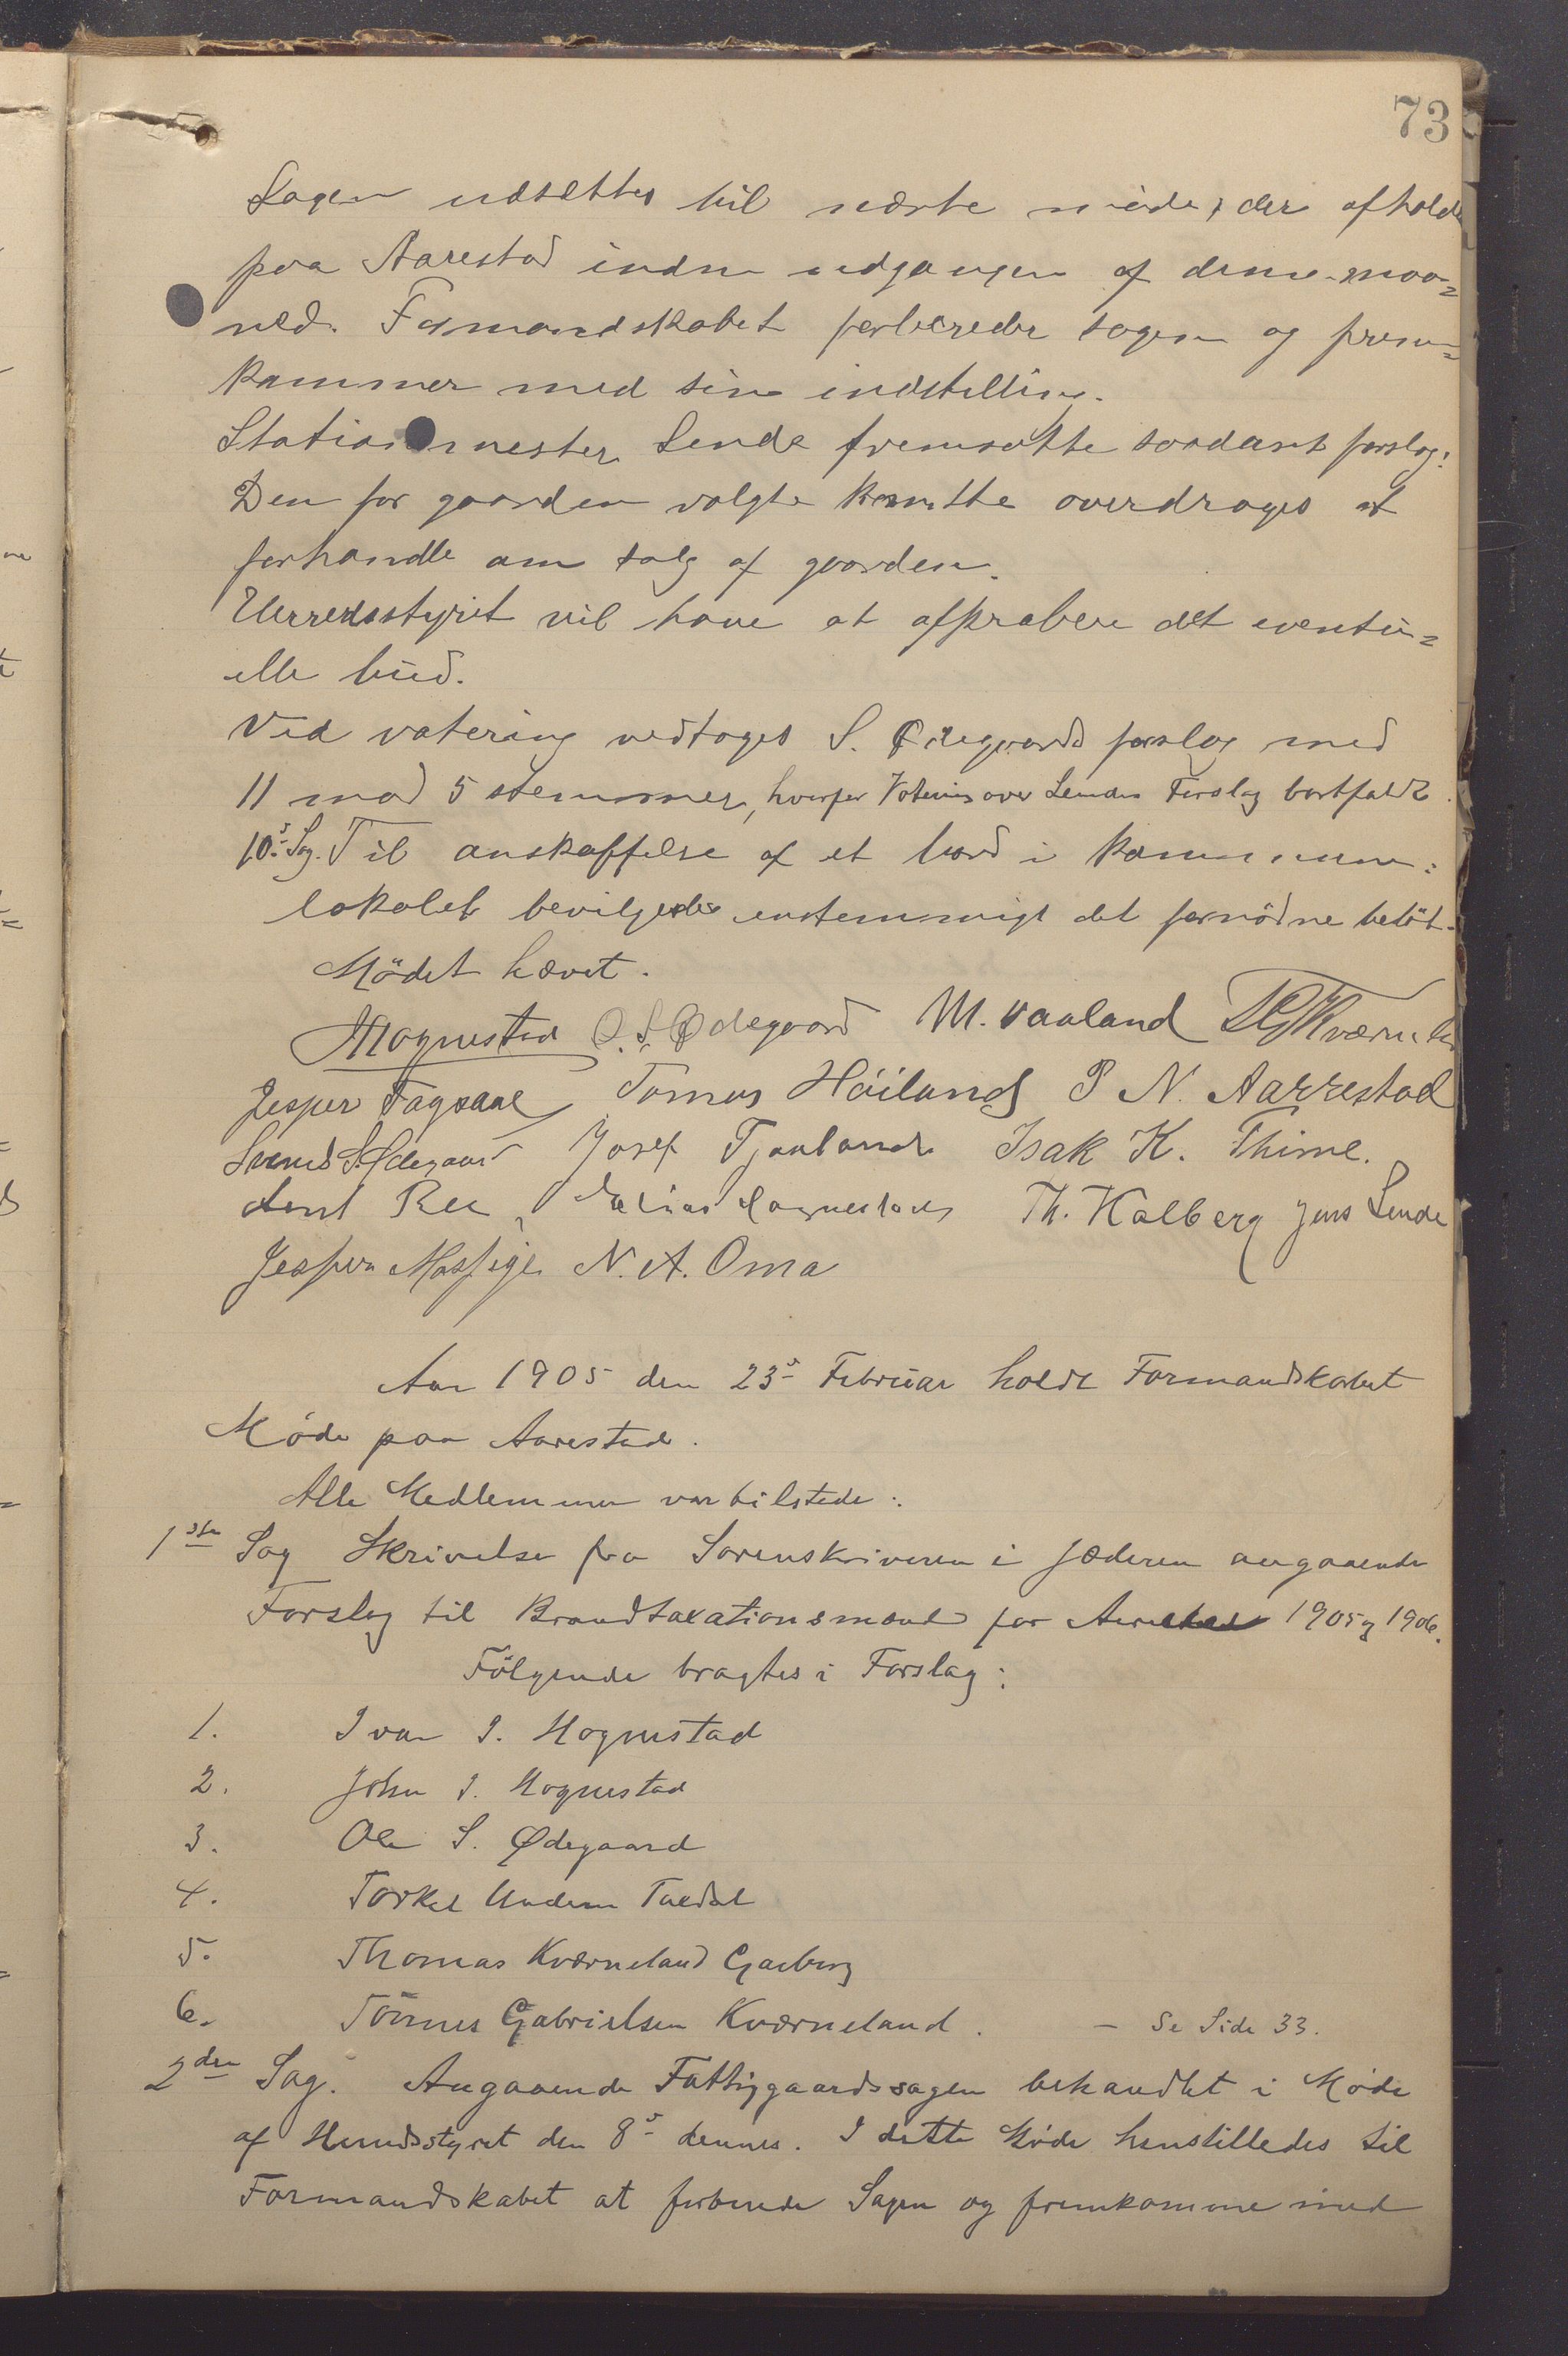 73
Sagen udsættes til næste møde, der afholdes
paa Aarestad inden udgangen af denne maa=
ned. Formandskabet forbereder sagen og frem=
kommer med sin indstilling.
Stationsmester Lende fremsatte saadant forslag:
Den for gaarden valgte komite overdrages at
forhandle om salg af gaarden.
Herredsstyret vil have at approbere det eventu=
elle bud.
Ved votering vedtoges S. Ødegaards forslag med
11 mod 5 stemmer, hvorfor Votering over Lendes Forslag bortfaldt.
10. Sag. Til anskaffelse af et bord i kommune=
lokalet bevilgedes enstemmigt det fornødne beløb.
Mödet hævet.
Mognestad O. S. Ødegaard M. Vaaland TGKværneland
Jesper Fagsaal Tønnes Høiland P N. Aarrestad
Svend S. Ødegaard Josef Tjaaland Isak K. Thime.
Ree Elias Haugnestad Th. Kalberg Jens Lende
Jesper Mossige N. A. Oma
Aar 1905 den 23 Februar holdt Formandskabet
Møde paa Aarestad.
Alle Medlemmer var tilstede:
1ste Sag Skrivelse fra Sorenskriveren i Jæderen angaaende
Forslag til Brandtaxationsmænd for 1905 og 1906.
Følgende bragtes i Forslag:
1. Ivar I. Mognestad
2. John I. Mognestad
3. Ole S. Ødegaard
4. Torkel Undem Tuedal
5. Thomas Kværneland Garborg
6. Tönnes Gabrielsen Kværneland. - Se Side 33.
2den Sag. Angaaende Fattiggaardssagen behandlet i Møde
af Herredsstyret den 8 dennes. I dette Møde henstilledes til
Formandskabet at forberede Sagen og fremkomme med